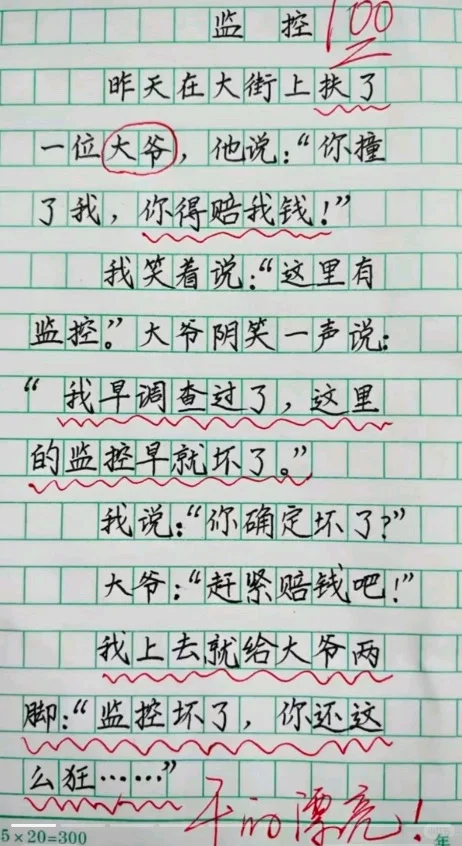 监控 100
昨天在大街上扶了
一位大爷，他说：“你撞
了我，你得赔我钱！”
我笑着说：“这里有
监控。”大爷阴笑一声说：
“我早调查过了，这里
的监控早就坏了。”
我说：“你确定坏了？”
大爷：“赶紧赔钱吧！”
我上去就给大爷两
脚：“监控坏了，你还这
么狂……”
干的漂亮！
5×20=300 年